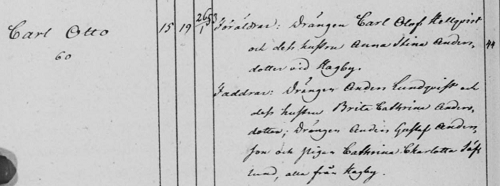 Carl Otto
60
15 19 26/1 53
Föräldrar: Drängen Carl Olof Hellqvist
och dess hustru Anna Stina Anders
dotter vid Hagby.
44
Faddrar: Drängen Anders Lundqvist och
dess hustru Brita Cathrina Anders
dotter; Drängen Anders Gustaf Anders
son och pigan Cathrina Charlotta
lund, alla från Hagby.